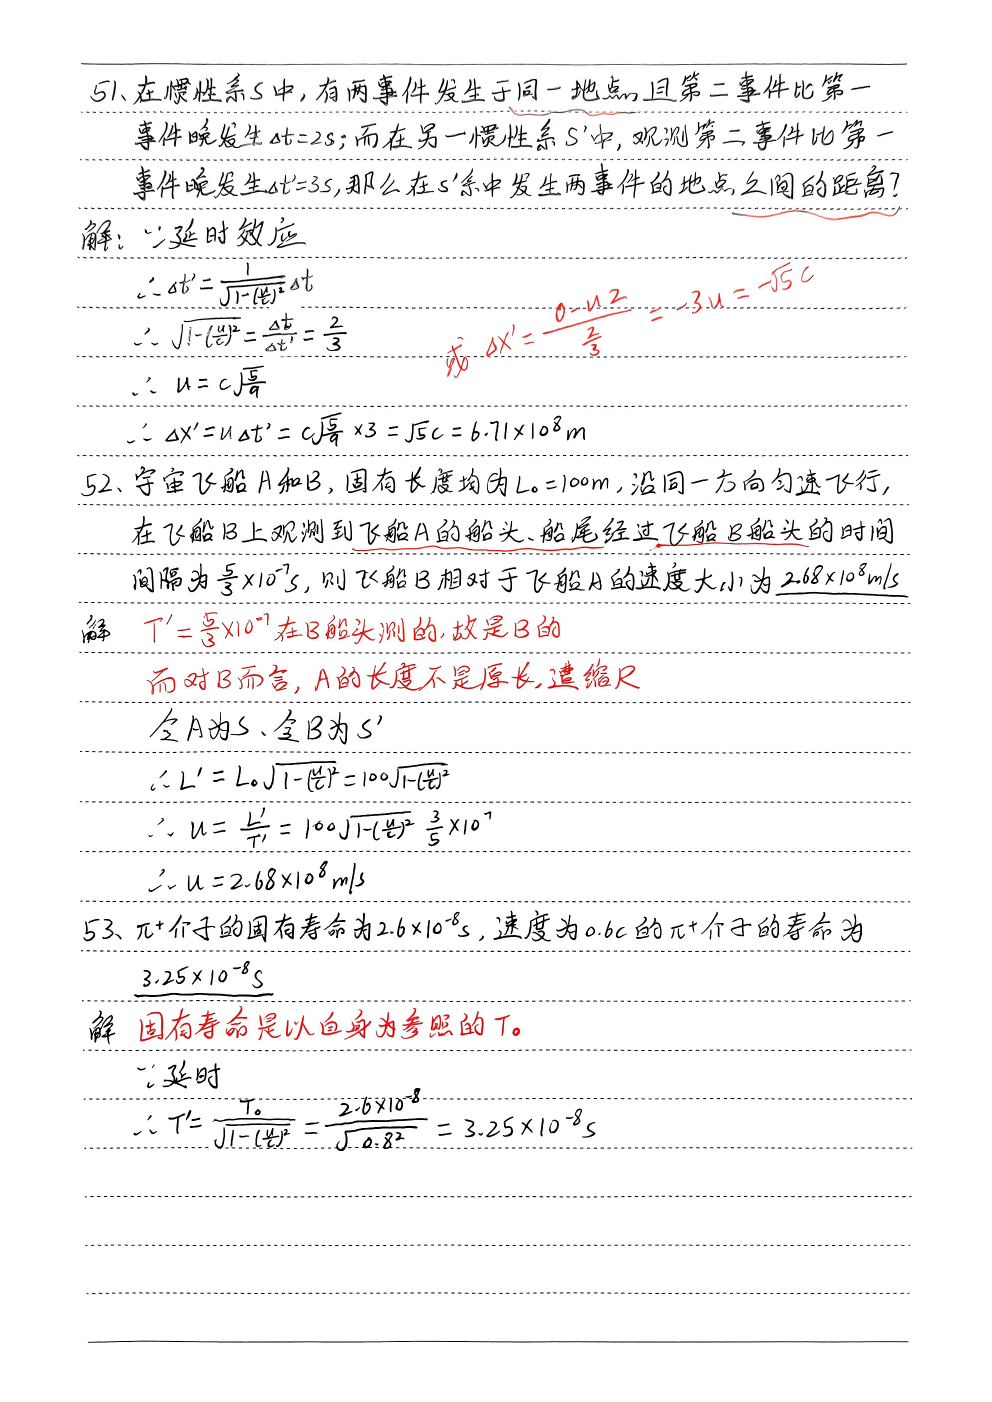 51、在惯性系S中,有两事件发生于同一地点,且第二事件比第一
事件晚发生Δt=2s;而在另一惯性系S'中,观测第二事件比第一
事件晚发生Δt'=3s,那么在S'系中发生两事件的地点之间的距离?
解: ∵延时效应
∴Δt'=\frac{1}{\sqrt{1-(\frac{u}{c})^2}}Δt
∴\sqrt{1-(\frac{u}{c})^2}=\frac{Δt}{Δt'}=\frac{2}{3}
或 Δx'=\frac{0-u2}{\frac{2}{3}}=-3u=-\sqrt{5}c
∴ u=c\sqrt{\frac{5}{9}}
∴ Δx'=uΔt'=c\sqrt{\frac{5}{9}}×3=\sqrt{5}c=6.71×10⁸m
52、宇宙飞船A和B,固有长度均为L₀=100m,沿同一方向匀速飞行,
在飞船B上观测到飞船A的船头、船尾经过飞船B船头的时间
间隔为\frac{5}{3}×10⁻⁷s,则飞船B相对于飞船A的速度大小为2.68×10⁸m/s
解 T'=\frac{5}{3}×10⁻⁷在B船头测的,故是B的
而对B而言,A的长度不是原长,遣缩尺
令A为S、令B为S'
∴L'=L₀\sqrt{1-(\frac{u}{c})^2}=100\sqrt{1-(\frac{u}{c})^2}
∴ u=\frac{L'}{T'}=100\sqrt{1-(\frac{u}{c})^2} \frac{3}{5}×10⁷
∴ u=2.68×10⁸m/s
53、π⁺介子的固有寿命为2.6×10⁻⁸s,速度为0.6c的π⁺介子的寿命为
3.25×10⁻⁸S
解 固有寿命是以自身为参照的T₀
∵延时
∴ T'=\frac{T₀}{\sqrt{1-(\frac{u}{c})^2}}=\frac{2.6×10⁻⁸}{\sqrt{0.8²}}=3.25×10⁻⁸s